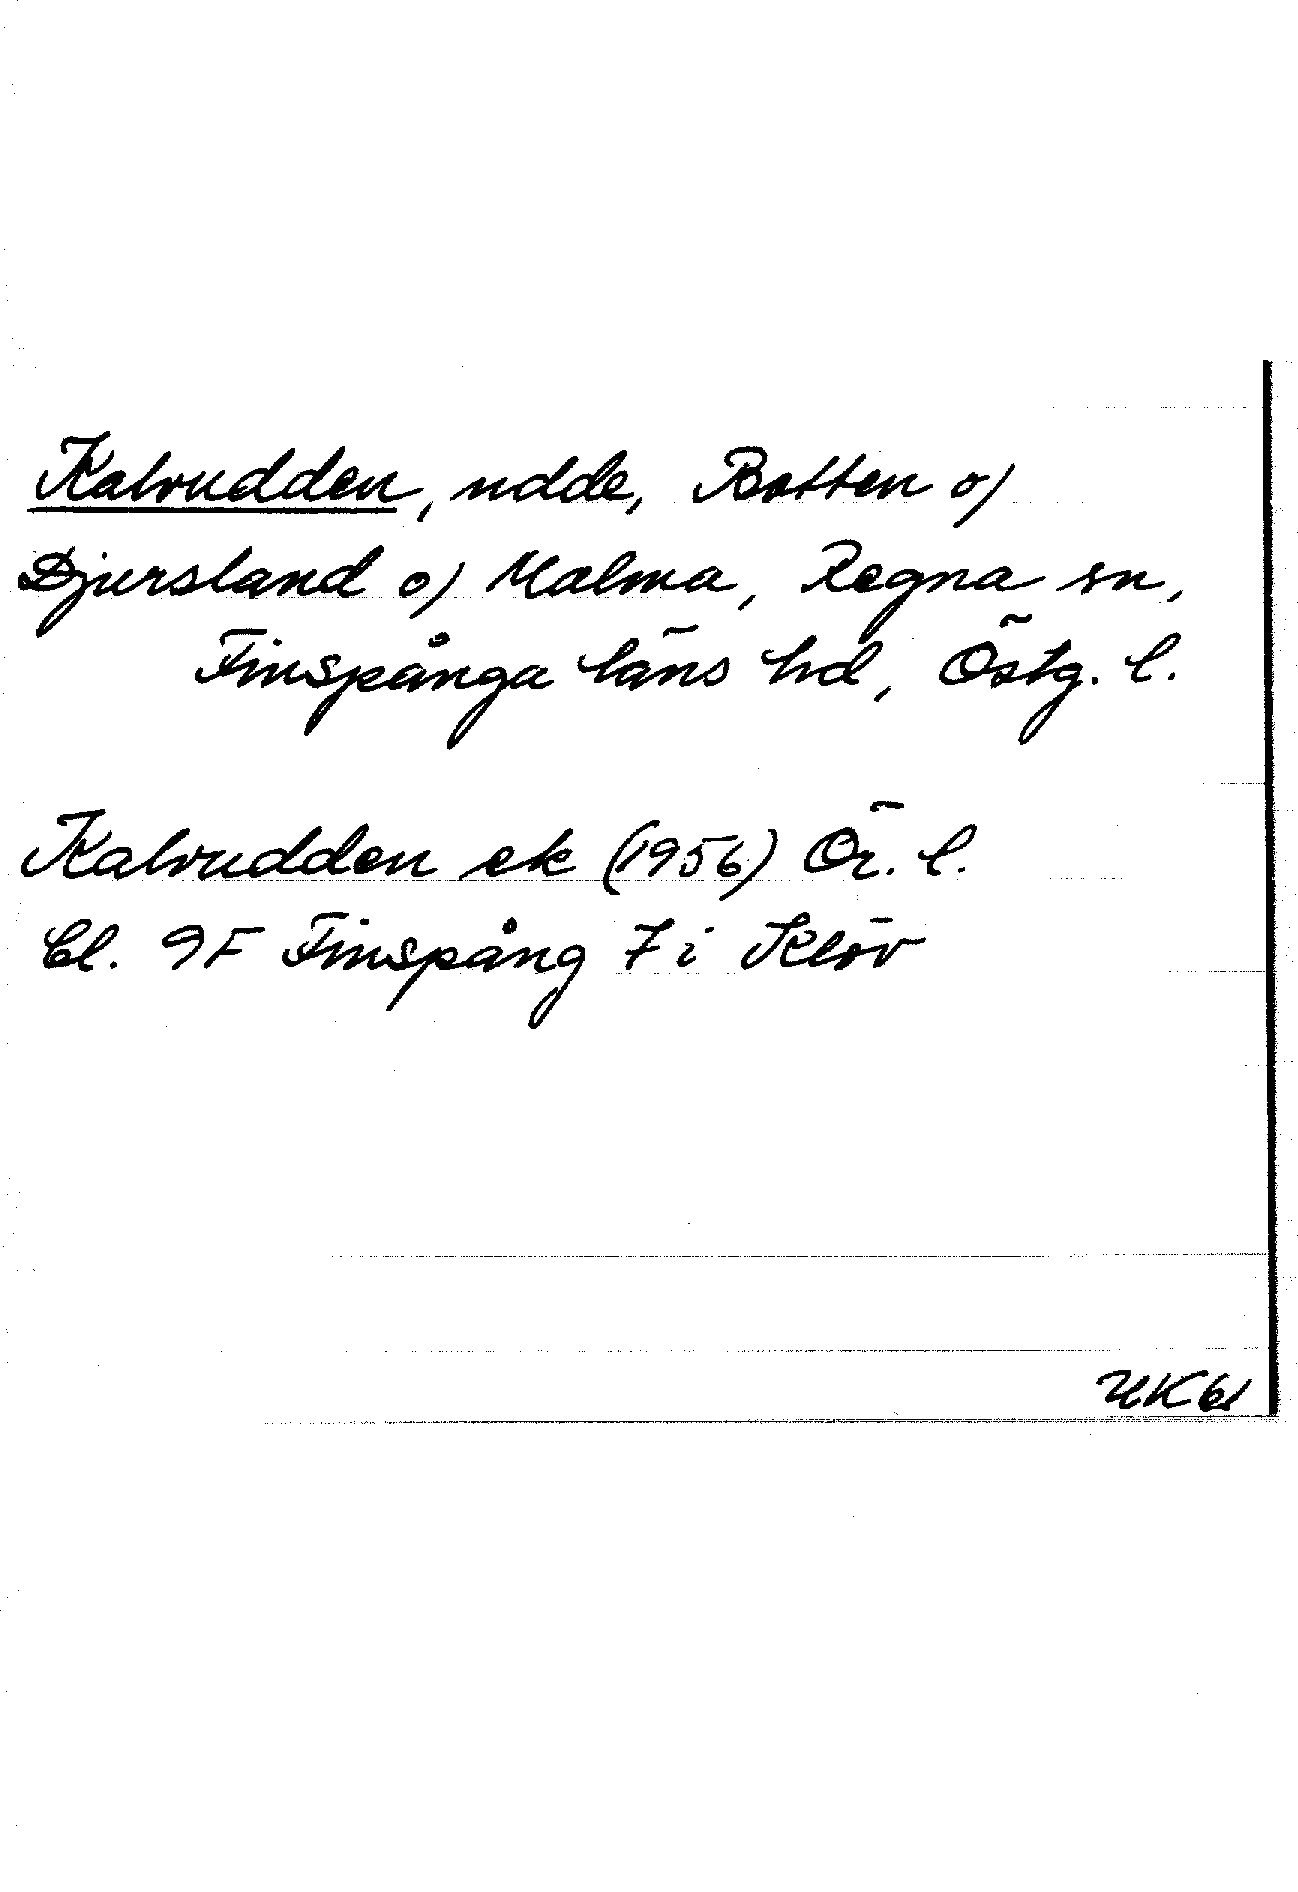 Kalvudden, udde, Botten o/
Djursland o/ Malma, Regna sn,
Finspånga läns hd, Östg. l.
Kalvudden ek (1956) Ör. l.
bl. 9F Finspång 7 i Klöv
UK61